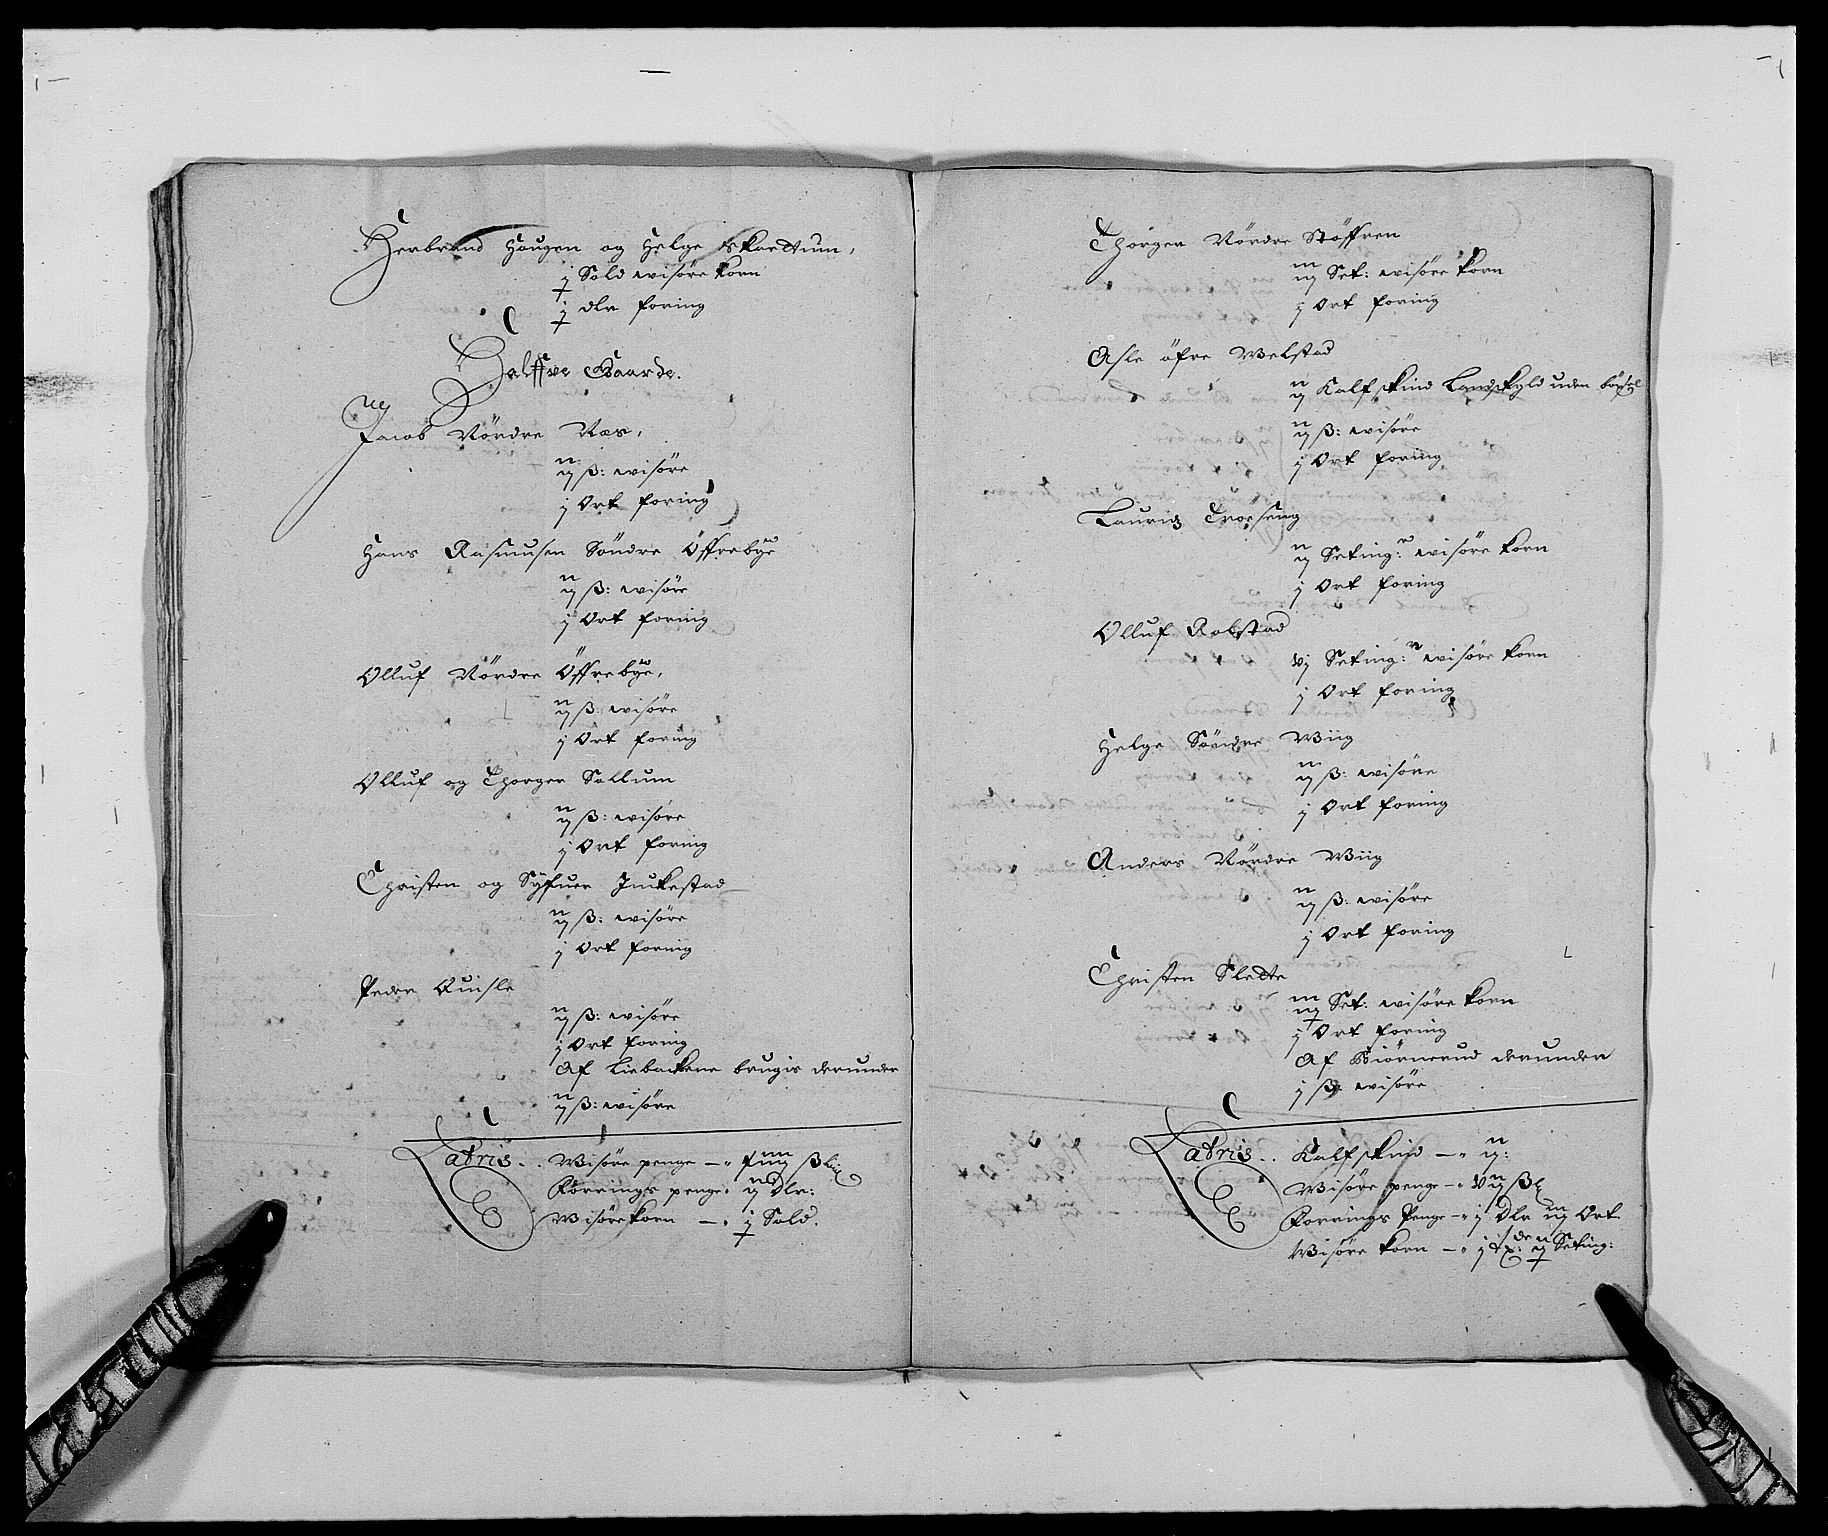 Herbrand Haugen og Helge Skardtum,
j Sold wisöre korn
j dlr foring
Halffve Gaarde.
Jacob Nördre Næs,
ij ß: wisöre
j Ort foring
Hans Rasmusen Söndre Öffrebÿe
ij ß: wisöre
j Ort foring
Olluf Nördre Öffrebÿe,
ij ß: wisöre
j Ort foring
Olluf og Thorger Sollum
ij ß: wisöre
j Ort foring
Christen og Syfuer
ij ß: wisöre
j Ort foring
Peder
ij ß: wisöre
j Ort foring
Af Liebackene brugis derunder
ij ß: wisöre
Latris.. Wisöre penge —
Forrings penge
Wisörekorn — j Sold.
Thorger Nördre Stöffren
iij Set: wisöre korn
j Ort foring
Asle öfre Welstad
ij Kalfskind Landskyld uden böxel
ij ß: wisöre
j Ort foring
Lauridz
ij Seting: wisöre korn
j Ort foring
Olluf Rolstad
vj Seting: wisöre korn
j Ort foring
Helge Söndre Wiig
iij ß: wisöre
j Ort foring
Anders Nördre Wiig
ij ß: wisöre
j Ort foring
Christen Slette
iij Set: wisöre korn
j Ort foring
Af Biörnerud derunder
j ß: wisöre
Latris.. Kalfskind — ij:
Wisöre penge — vij ß
Forrings Penge — j Dlr iij Ort
Wisöre korn — Seting: